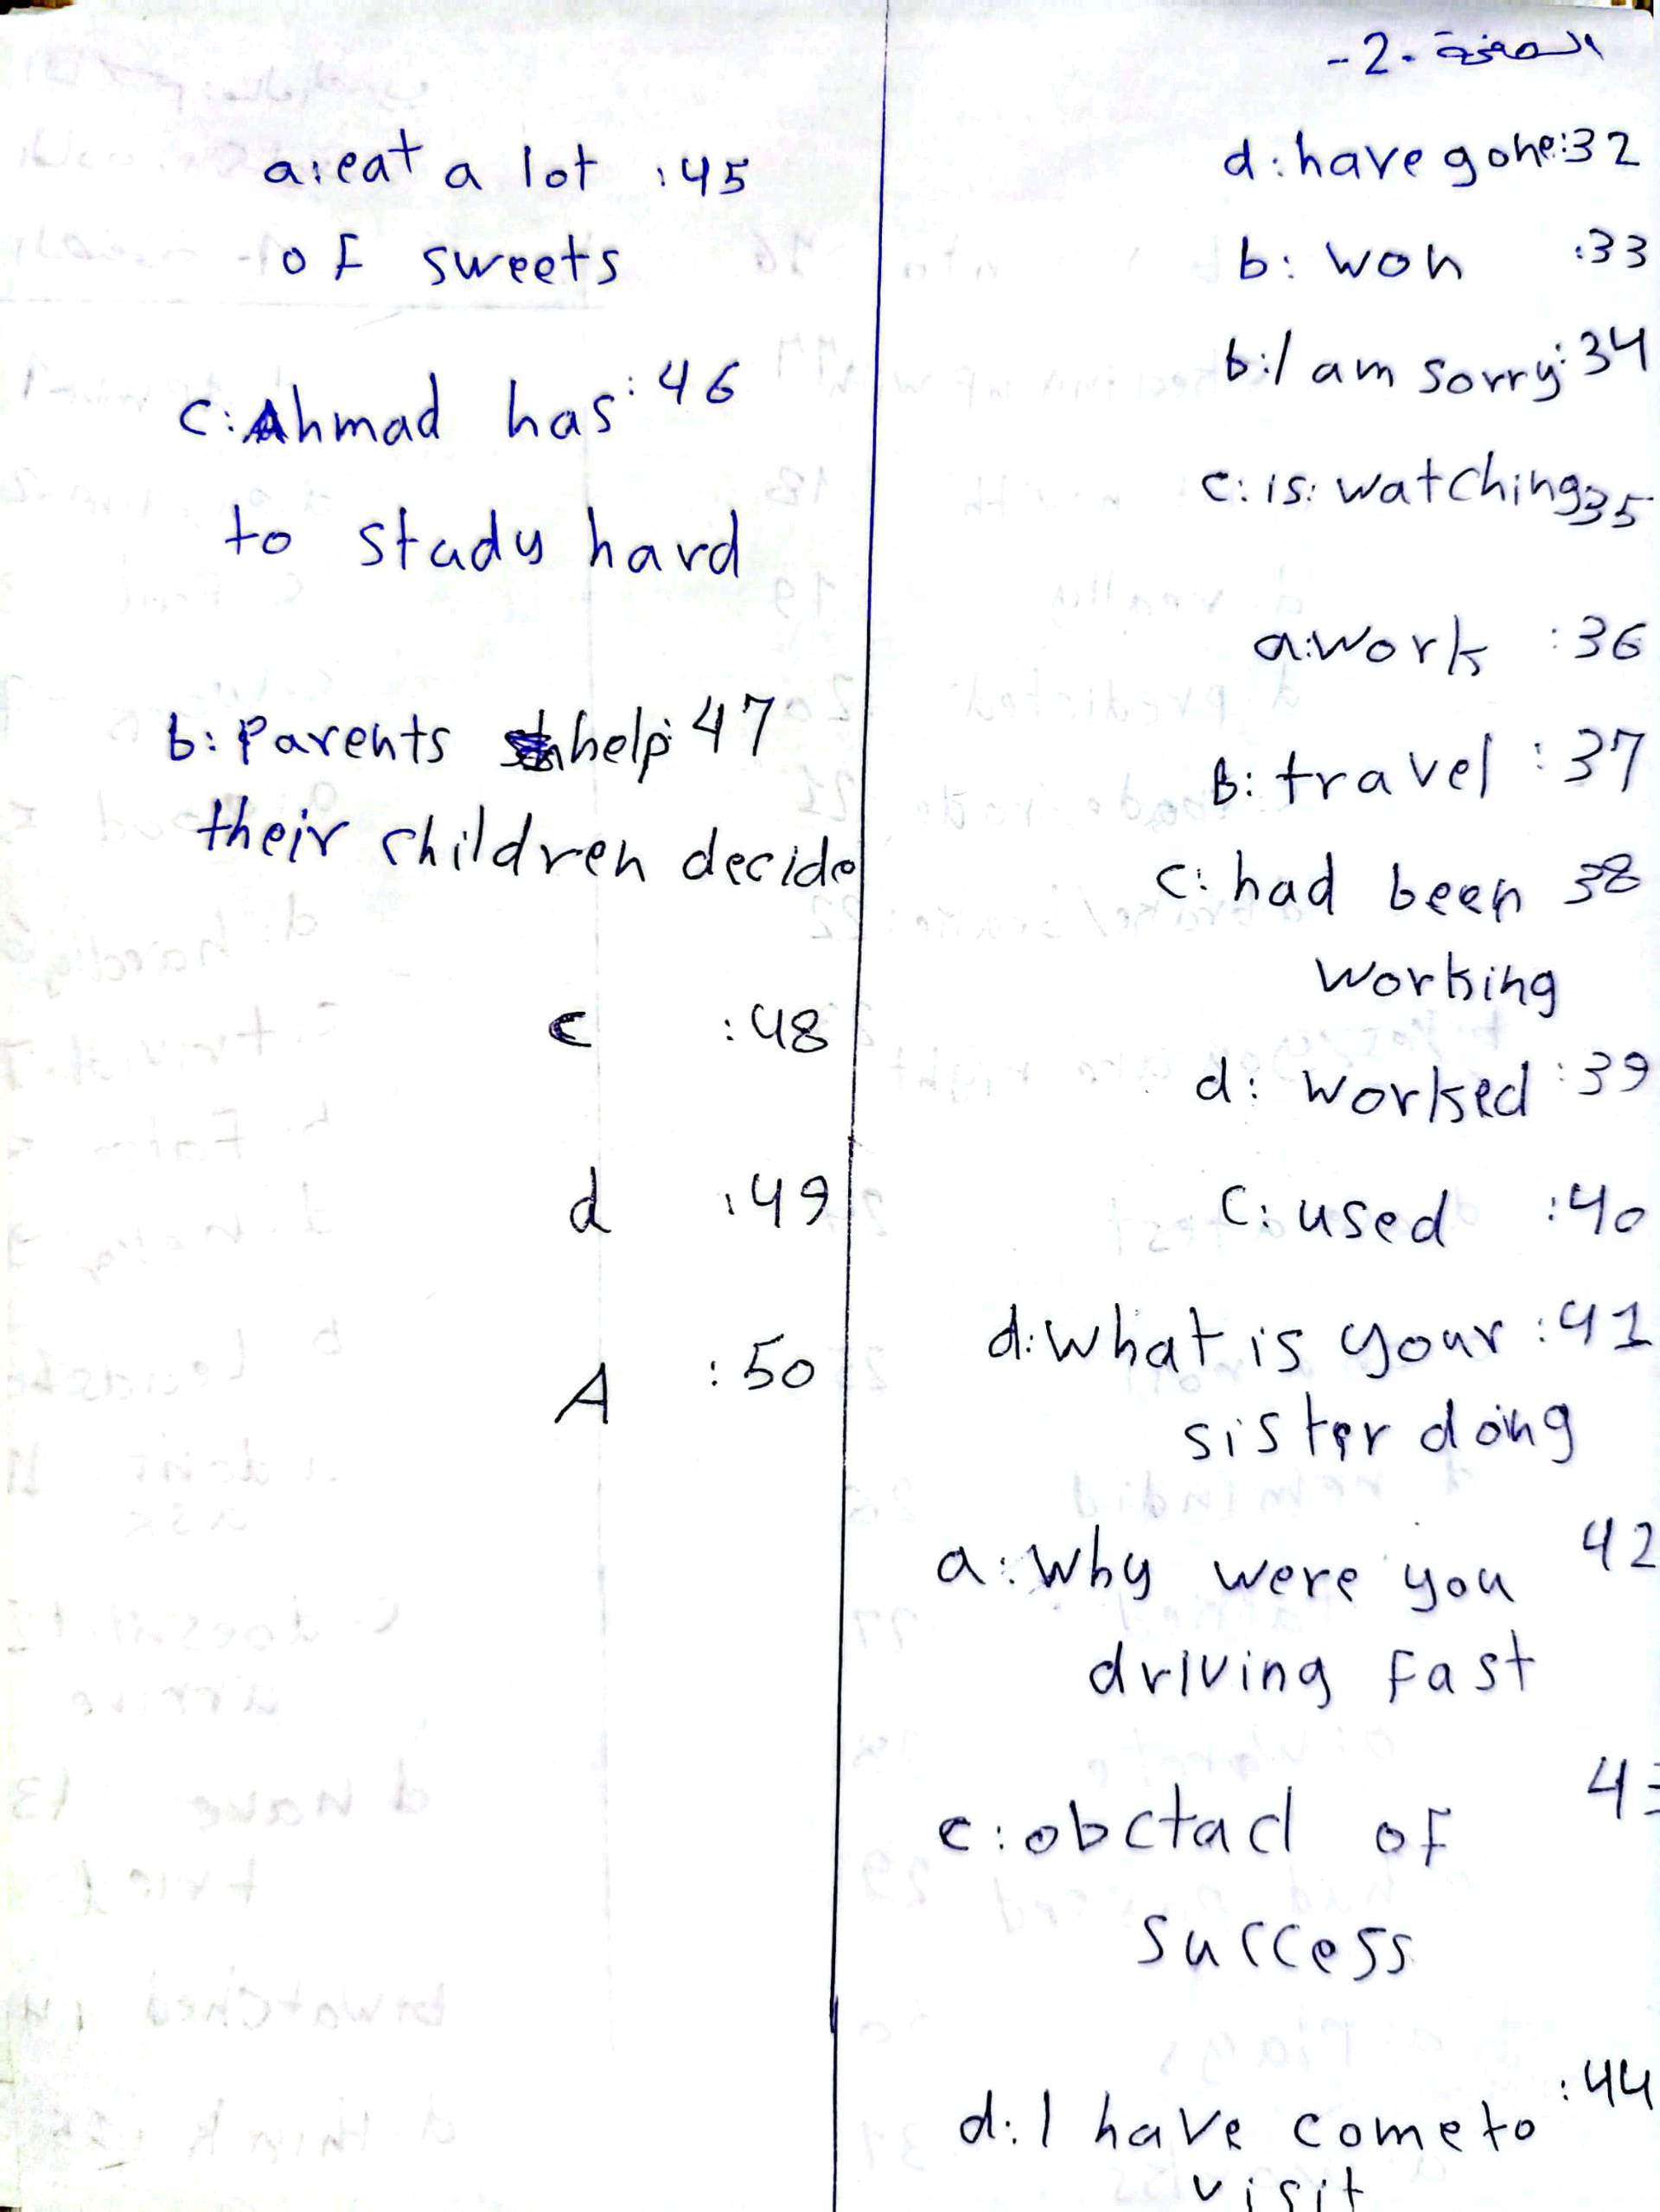 الصفحة -2-
d: have gone :32
b: won :33
b: I am sorry : 34
c: is: watching 35
a: work : 36
B: travel : 37
c: had been 38
working
d: worked : 39
C: used : 40
d: What is your : 41
sister doing
a: Why were you 42
driving Fast
c: obctacl of 43
success
d: I have come to : 44
visit
a: eat a lot : 45
of sweets
C: Ahmad has : 46
to study hard
b: Parents help : 47
their children decide
c : 48
d : 49
A : 50